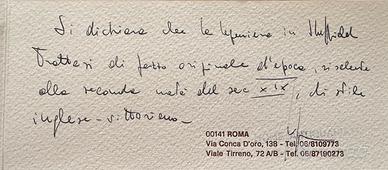 Si dichiara che la legumiera in Sheffield
Trattasi di pezzo originale d'epoca, risalente
alla seconda metà del sec XIX, di stile
inglese-vittoriano-
00141 ROMA
Via Conca D'oro, 138 - Tel. 06/8109773
Viale Tirreno, 72 A/B - Tel. 06/87190273